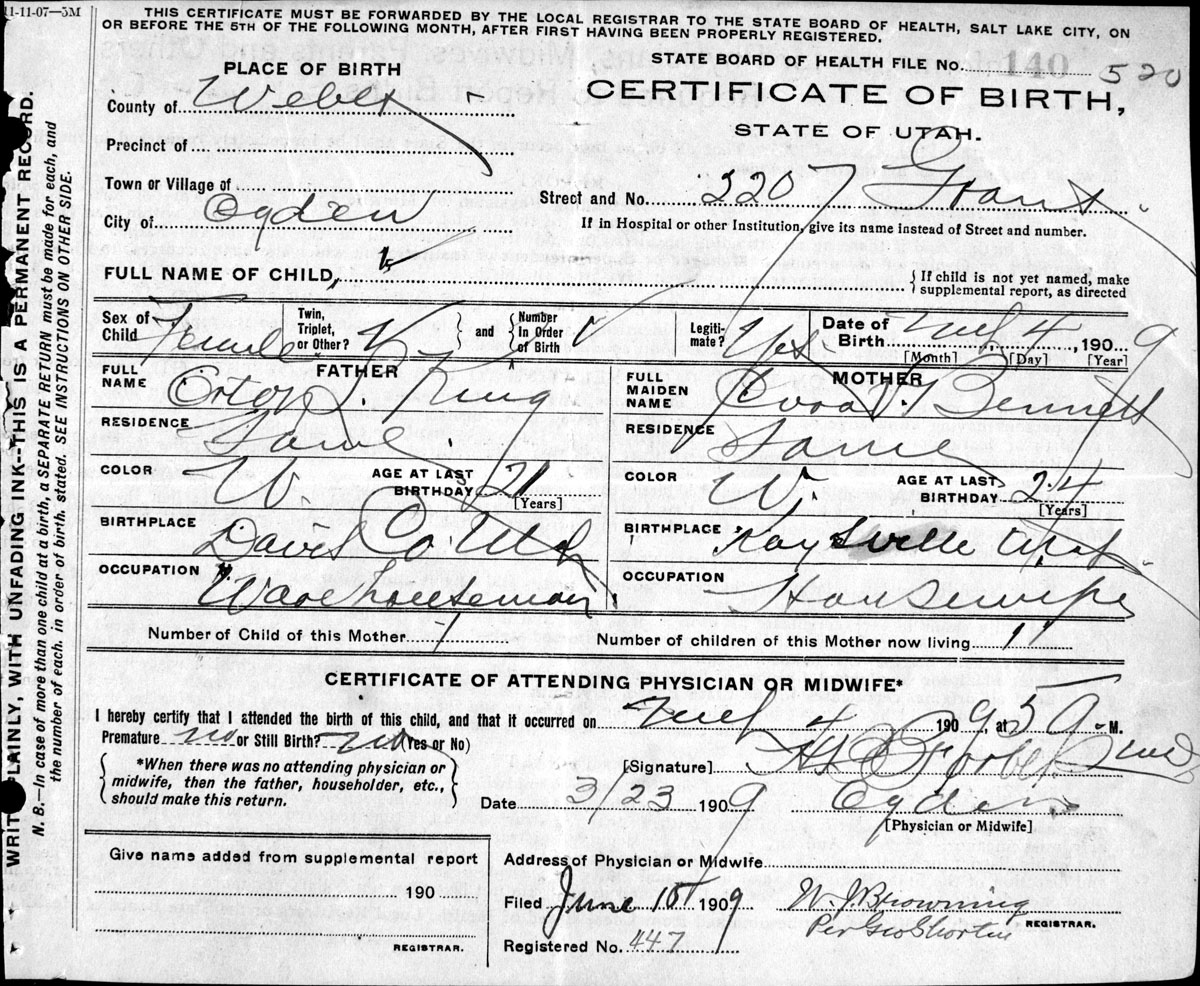 11-11-07—5M
THIS CERTIFICATE MUST BE FORWARDED BY THE LOCAL REGISTRAR TO THE STATE BOARD OF HEALTH, SALT LAKE CITY, ON
OR BEFORE THE 5TH OF THE FOLLOWING MONTH, AFTER FIRST HAVING BEEN PROPERLY REGISTERED.
PLACE OF BIRTH
STATE BOARD OF HEALTH FILE NO. 140 520
County of Weber
CERTIFICATE OF BIRTH,
STATE OF UTAH.
Precinct of
Town or Village of
Street and No. 2207 Grant.
City of Ogden
If in Hospital or other Institution, give its name instead of Street and number.
FULL NAME OF CHILD,
If child is not yet named, make
supplemental report, as directed
Sex of Child Female
Twin, Triplet, or Other?
and
Number In Order of Birth
Legitimate? Yes.
Date of Birth 4, 1909
[Month] [Day] [Year]
FATHER
MOTHER
FULL NAME Orton J. King
FULL MAIDEN NAME Cora V. Bennett
RESIDENCE Same.
RESIDENCE Same
COLOR W. AGE AT LAST BIRTHDAY 21
[Years]
COLOR W. AGE AT LAST BIRTHDAY 24
[Years]
BIRTHPLACE Davis Co. Utah
BIRTHPLACE Kaysville Utah
OCCUPATION Warehouseman
OCCUPATION Housewife
Number of Child of this Mother 1
Number of children of this Mother now living 1
CERTIFICATE OF ATTENDING PHYSICIAN OR MIDWIFE*
I hereby certify that I attended the birth of this child, and that it occurred on 4 1909, at 5 a. M.
Premature no or Still Birth? no (Yes or No)
*When there was no attending physician or
midwife, then the father, householder, etc.,
should make this return.
[Signature] H. C.
Date 3/23 1909 Ogden
[Physician or Midwife]
Give name added from supplemental report
190
REGISTRAR.
Address of Physician or Midwife
Filed June 15 1909 W. J. Browning
REGISTRAR.
Per Geo Shorten
Registered No. 447
WRITE PLAINLY, WITH UNFADING INK--THIS IS A PERMANENT RECORD.
N. B.—In case of more than one child at a birth, a SEPARATE RETURN must be made for each, and
the number of each, in order of birth, stated. SEE INSTRUCTIONS ON OTHER SIDE.